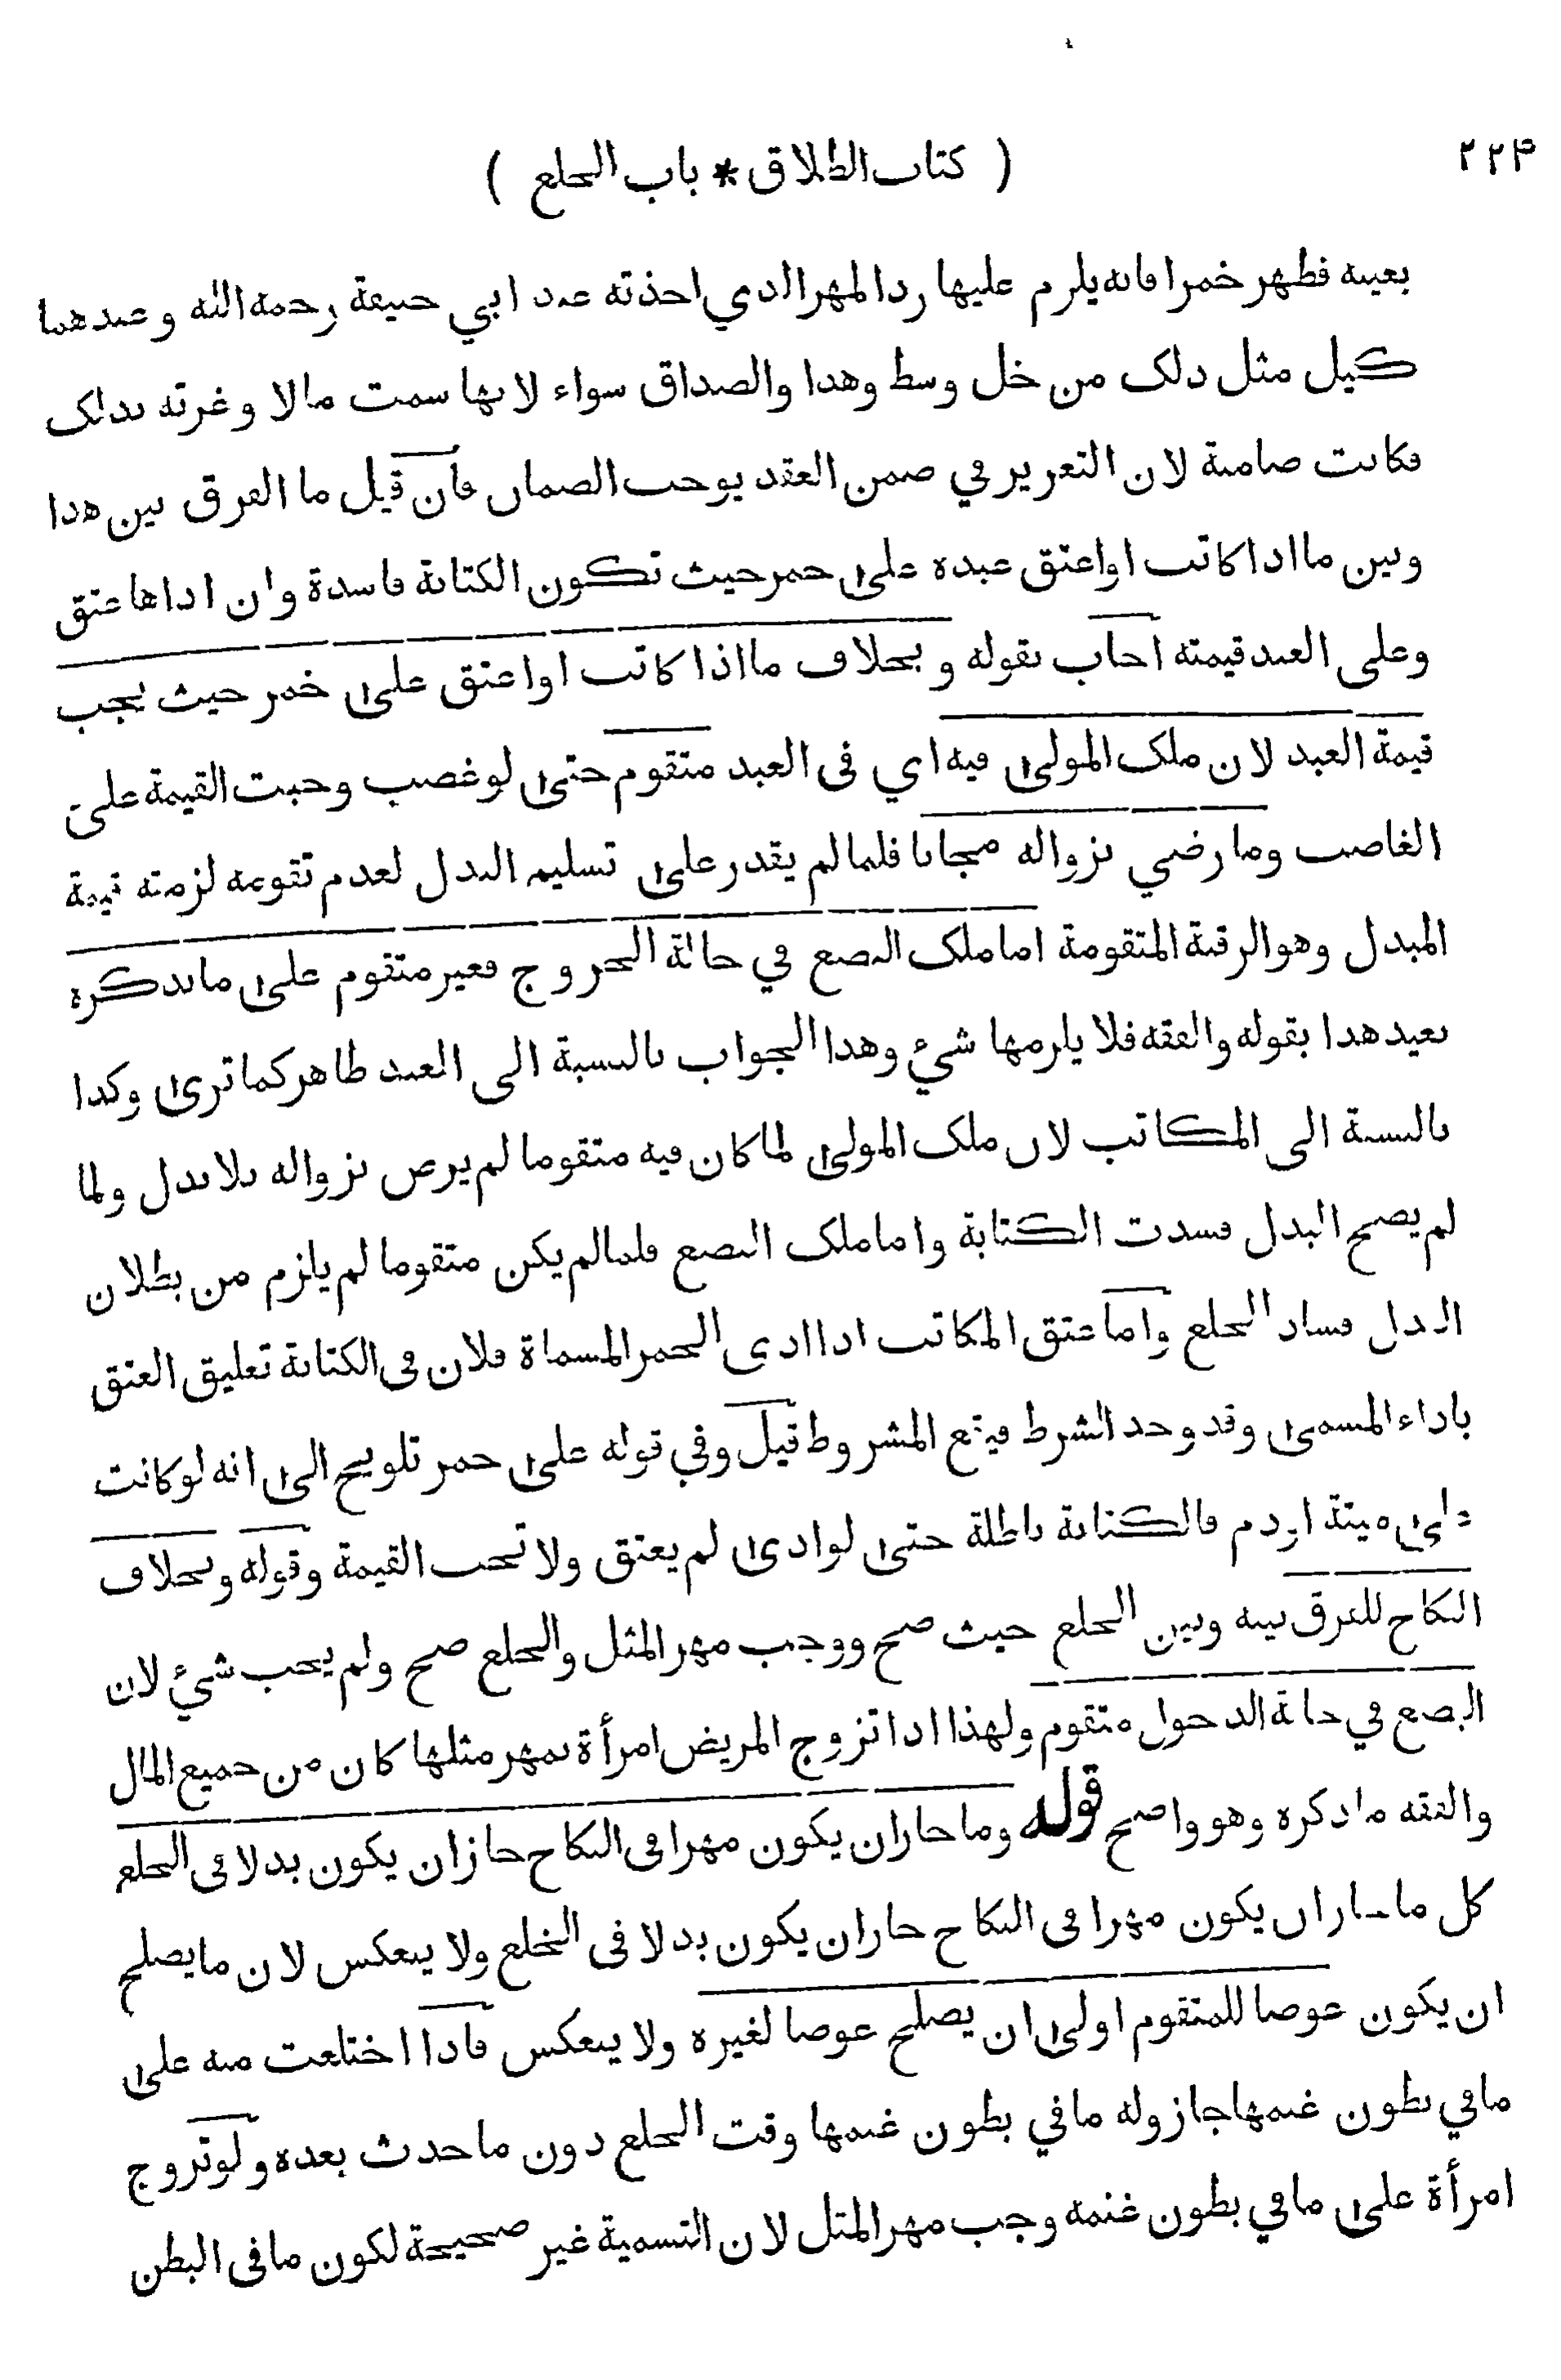 ٢٢٤
( كتاب الطلاق * باب الخلع )
بعينه فظهر خمرا فانه يلزم عليها رد المهر الذي اخذته عند ابي حنيفة رحمه الله وعندهما
كيل مثل ذلك من خل وسط وهذا والصداق سواء لانها سمت مالا وغرته بذلك
فكانت ضامنة لان التغرير في ضمن العقد يوجب الضمان فان قيل ما الفرق بين هذا
وبين ما اذا كاتب او اعتق عبده على خمر حيث تكون الكتابة فاسدة وان اداها عتق
وعلى العبد قيمته اجاب بقوله وبخلاف ما اذا كاتب او اعتق على خمر حيث يجب
قيمة العبد لان ملك المولى فيه اي فى العبد متقوم حتى لو غصب وجبت القيمة على
الغاصب وما رضي بزواله مجانا فلما لم يقدر على تسليم البدل لعدم تقومه لزمته قيمة
المبدل وهو الرقبة المتقومة اما ملك البضع في حالة الخروج فغير متقوم على ما نذكره
بعيد هذا بقوله والفقه فلا يلزمها شيء وهذا الجواب بالنسبة الى العبد ظاهر كما ترى وكذا
بالنسبة الى المكاتب لان ملك المولى لما كان فيه متقوما لم يرض بزواله بلا بدل ولما
لم يصح البدل فسدت الكتابة واما ملك البضع فلما لم يكن متقوما لم يلزم من بطلان
البدل فساد الخلع واما عتق المكاتب اذا ادى الخمر المسماة فلان فى الكتابة تعليق العتق
باداء المسمى وقد وجد الشرط فيقع المشروط قيل وفي قوله على خمر تلويح الى انه لو كانت
على ميتة او دم فالكتابة باطلة حتى لو ادى لم يعتق ولا تجب القيمة وقوله وبخلاف
النكاح للفرق بينه وبين الخلع حيث صح ووجب مهر المثل والخلع صح ولم يجب شيء لان
البضع في حالة الدخول متقوم ولهذا اذا تزوج المريض امرأة بمهر مثلها كان من جميع المال
والفقه ما ذكره وهو واضح قوله وما جاز ان يكون مهرا فى النكاح جاز ان يكون بدلا فى الخلع
كل ما جاز ان يكون مهرا فى النكاح جاز ان يكون بدلا فى الخلع ولا ينعكس لان ما يصلح
ان يكون عوضا للمتقوم اولى ان يصلح عوضا لغيره ولا ينعكس فاذا اختلعت منه على
ما في بطون غنمها جاز وله ما في بطون غنمها وقت الخلع دون ما حدث بعده ولو تزوج
امرأة على ما في بطون غنمه وجب مهر المثل لان التسمية غير صحيحة لكون ما فى البطن